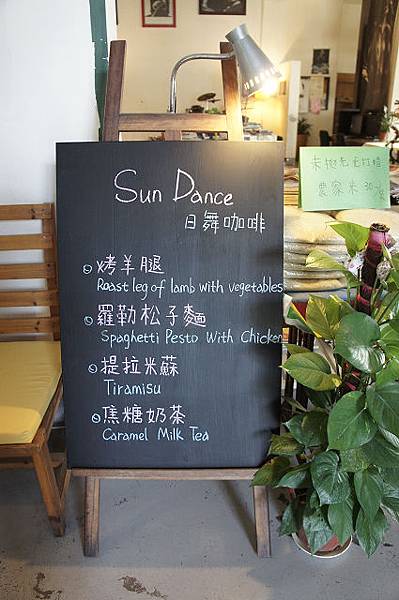 Sun Dance
日舞咖啡
烤羊腿
Roast leg of lamb with vegetables
羅勒松子麵
Spaghetti Pesto With Chicken
提拉米蘇
Tiramisu
焦糖奶茶
Caramel Milk Tea
農家米 30